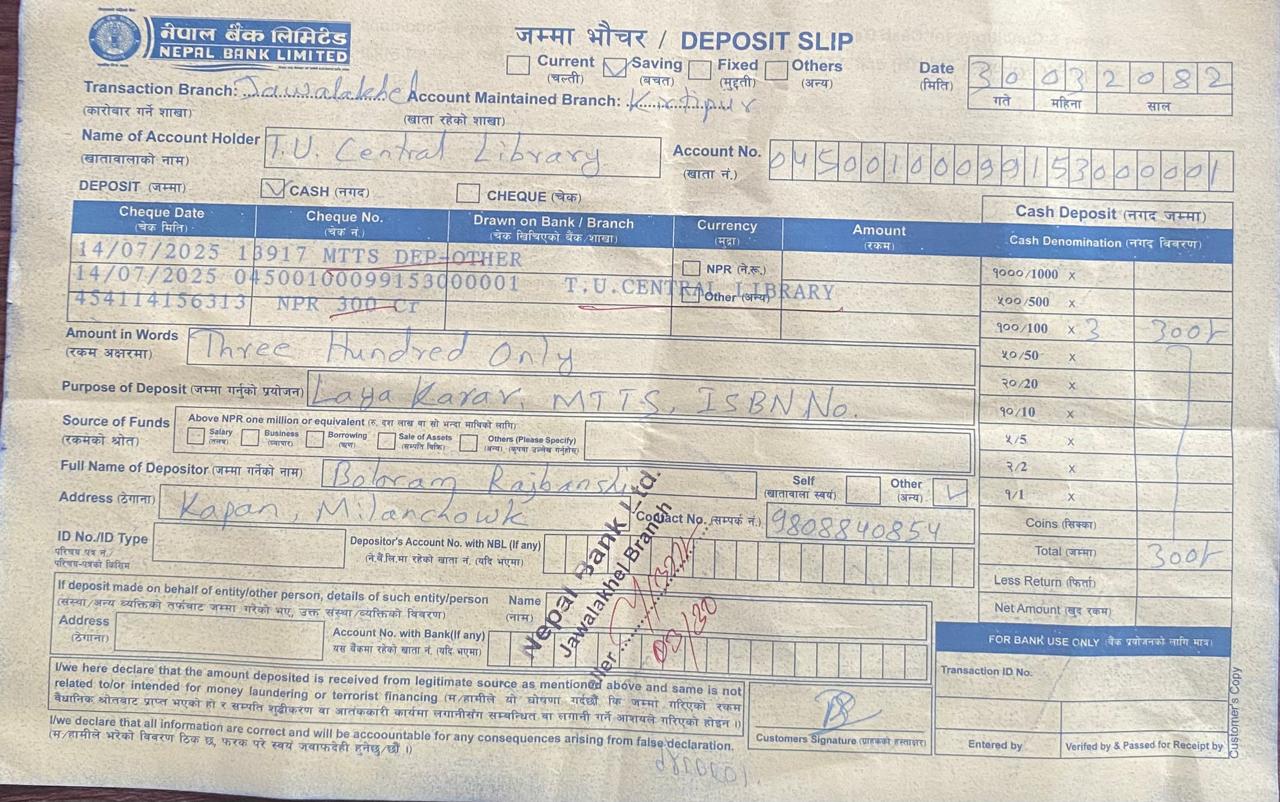 नेपाल बैंक लिमिटेड
NEPAL BANK LIMITED
जम्मा भौचर / DEPOSIT SLIP
Current (चल्ती) Saving (बचत) Fixed (मुद्दती) Others (अन्य)
Date (मिति) 30 03 2082
गते महिना साल
Transaction Branch: Jawalakhel Account Maintained Branch: Kirtipur
(कारोबार गर्ने शाखा) (खाता रहेको शाखा)
Name of Account Holder T.U. Central Library Account No. 04500100099153000001
(खातावालाको नाम) (खाता नं.)
DEPOSIT (जम्मा) CASH (नगद) CHEQUE (चेक)
Cash Deposit (नगद जम्मा)
Cheque Date Cheque No. Drawn on Bank / Branch Currency Amount
(चेक मिति) (चेक नं.) (चेक खिचिएको बैंक/शाखा) (मुद्रा) (रकम)
Cash Denomination (नगद विवरण)
14/07/2025 13917 MTTS DEP-OTHER
NPR (ने.रू.)
14/07/2025 04500100099153000001 T.U.CENTRAL LIBRARY
Other (अन्य)
454114156313 NPR 300 Cr
१०००/1000 x
५००/500 x
१००/100 x 3 300/-
५०/50 x
२०/20 x
१०/10 x
५/5 x
२/2 x
१/1 x
Coins (सिक्का)
Total (जम्मा) 300/-
Less Return (फिर्ता)
Net Amount (खुद रकम)
Amount in Words Three Hundred Only
(रकम अक्षरमा)
Purpose of Deposit (जम्मा गर्नुको प्रयोजन) Laya Karar, MTTS, ISBN No.
Source of Funds Above NPR one million or equivalent (रु. दश लाख वा सो भन्दा माथिको लागि)
(रकमको श्रोत) Salary (तलब) Business (व्यापार) Borrowing (ऋण) Sale of Assets (सम्पत्ति बिक्रि) Others (Please Specify) (अन्य) (कृपया उल्लेख गर्नुहोस्)
Full Name of Depositor (जम्मा गर्नेको नाम) Boloram Rajbanshi Self (खातावाला स्वयं) Other (अन्य)
Address (ठेगाना) Kapan, Milanchowk Contact No. (सम्पर्क नं.) 9808840854
ID No./ID Type Depositor's Account No. with NBL (If any)
परिचय पत्र नं./ (ने.बैं.लि.मा रहेको खाता नं. (यदि भएमा)
परिचय-पत्रको किसिम
If deposit made on behalf of entity/other person, details of such entity/person Name
(संस्था/अन्य व्यक्तिको तर्फबाट जम्मा गरेको भए, उक्त संस्था/व्यक्तिको विवरण) (नाम)
Address Account No. with Bank(If any)
(ठेगाना) यस बैंकमा रहेको खाता नं. (यदि भएमा)
Nepal Bank Ltd.
Jawalakhel Branch
eller
03/30
FOR BANK USE ONLY (बैंक प्रयोजनको लागि मात्र)
Transaction ID No.
Entered by Verifed by & Passed for Receipt by
I/we here declare that the amount deposited is received from legitimate source as mentioned above and same is not
related to/or intended for money laundering or terrorist financing (म/हामीले यो घोषणा गर्दछौं कि जम्मा गरिएको रकम
बैधानिक श्रोतबाट प्राप्त भएको हो र सम्पत्ति शुद्धीकरण वा आतंककारी कार्यमा लगानीसँग सम्बन्धित वा लगानी गर्ने आशयले गरिएको होइन ।)
I/we declare that all information are correct and will be acoountable for any consequences arising from false declaration.
(म/हामीले भरेको विवरण ठिक छ, फरक परे स्वयं जवाफदेही हुनेछु/छौं ।)
Customers Signature (ग्राहकको हस्ताक्षर)
Customer's Copy